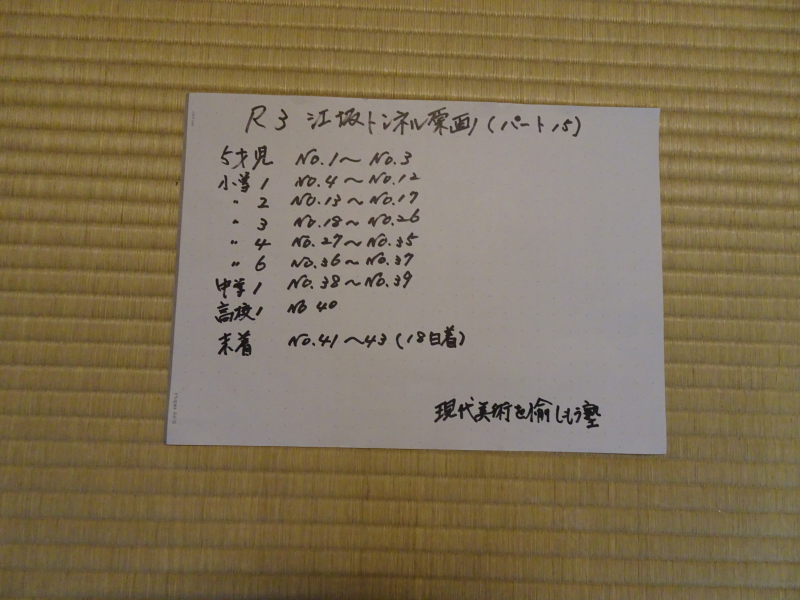 R3 江坂トンネル原画(パート15)
5才児 No.1〜No.3
小学1 No.4〜No.12
〃 2 No.13〜No.17
〃 3 No.18〜No.26
〃 4 No.27〜No.35
〃 6 No.36〜No.37
中学1 No.38〜No.39
高校1 No 40
未着 No.41〜43(18日着)
現代美術を愉しもう塾